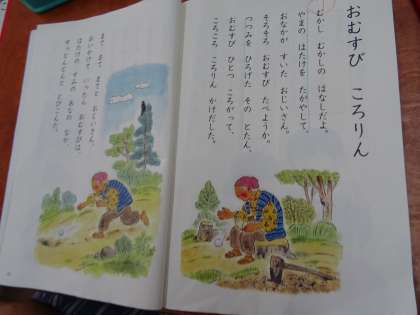 おむすび ころりん
むかし むかしの はなしだよ。
やまの はたけを たがやして、
おなかが すいた おじいさん。
そろそろ おむすび たべようか。
つつみを ひろげた その とたん、
おむすび ひとつ ころがって、
ころころ ころりん かけだした。
まて、まて、まてと おじいさん、
おいかけて いったら おむすびは、
はたけの すみの あなの なか、
すっとんとんと とびこんだ。